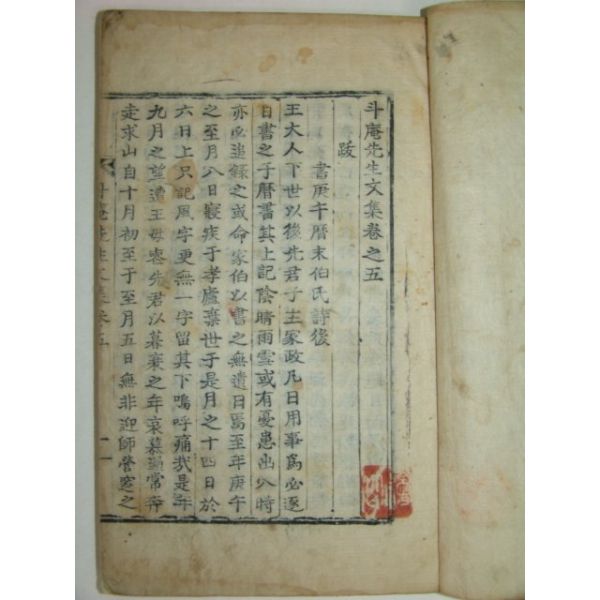 斗庵先生文集卷之五
跋
書庚午曆末伯氏詩後
王大人下世以後先君子主家政凡日用事爲必逐
日書之于曆書其上記陰晴雨雪或有憂患出入時
亦必追錄之或命家伯以書之無遺日焉至年庚午
之至月八日寢疾于孝廬棄世于是月之十四日於
六日上只記風字更無一字留其下嗚呼痛哉是年
九月之望遭王母喪先君以暮衰之年哀慕逾常奔
走求山自十月初至于至月五日無非迎師營窆之
斗庵先生文集卷五